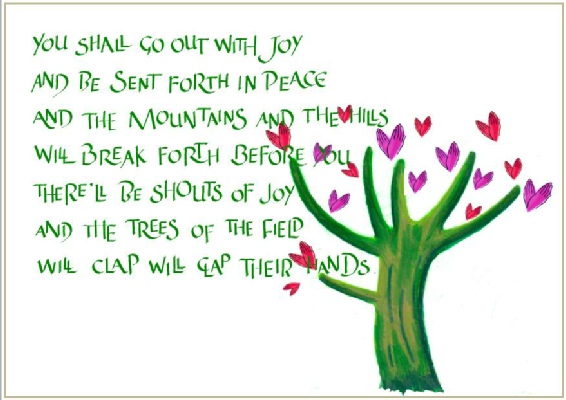 You shall go out with Joy
and be sent forth in peace
and the mountains and the hills
will break forth before you
there'll be shouts of Joy
and the trees of the field
will clap will clap their hands